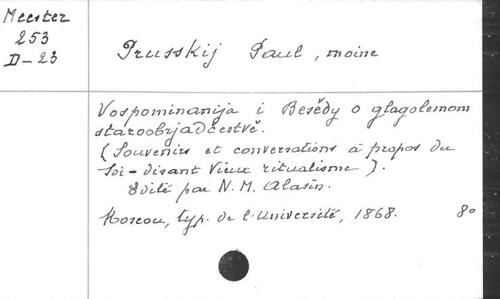 Meester
253
D-23
Prusskij Paul, moine
Vospominanija i Besědy o glagolemom
staroobrjadčestvě.
(Souvenirs et conversations à propos du
Soi-disant Vieux ritualisme).
Edité par N. M. Alasin.
Moscou, typ. de l'Université, 1868. 8o